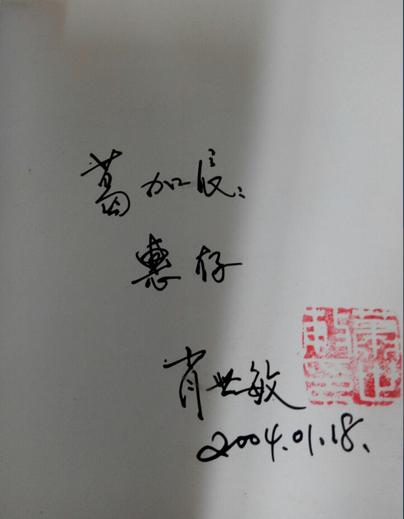 葛加良：
惠存
肖世敏
2004.01.18.